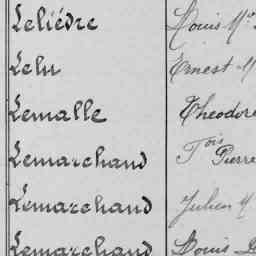 Lelièvre Louis M
Lelu Ernest M
Lemalle Theodore
Lemarchand Fois Pierre
Lemarchand Julien M
Lemarchand Louis